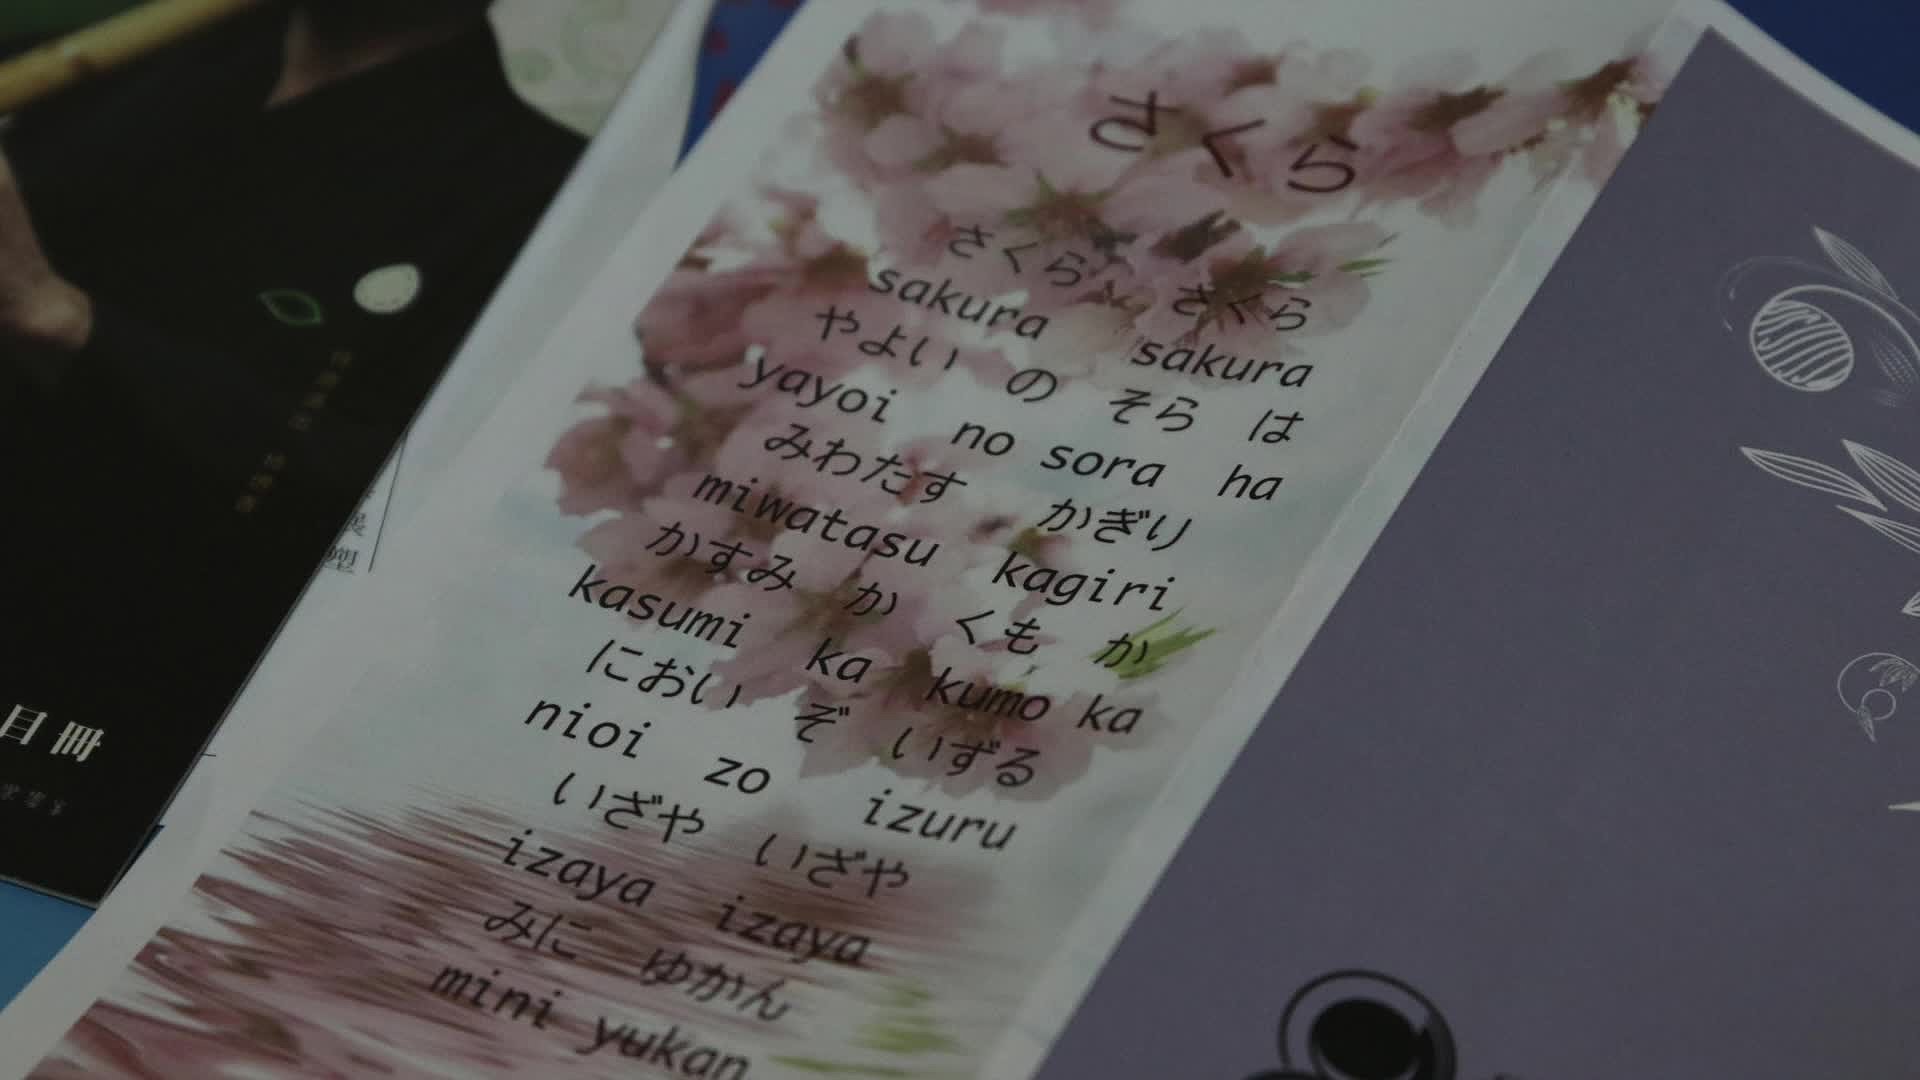 さくら
さくら さくら
sakura sakura
やよい の そら は
yayoi no sora ha
みわたす かぎり
miwatasu kagiri
かすみ か くも か
kasumi ka kumo ka
におい ぞ いずる
nioi zo izuru
いざや いざや
izaya izaya
みに ゆかん
mini yukan
目冊